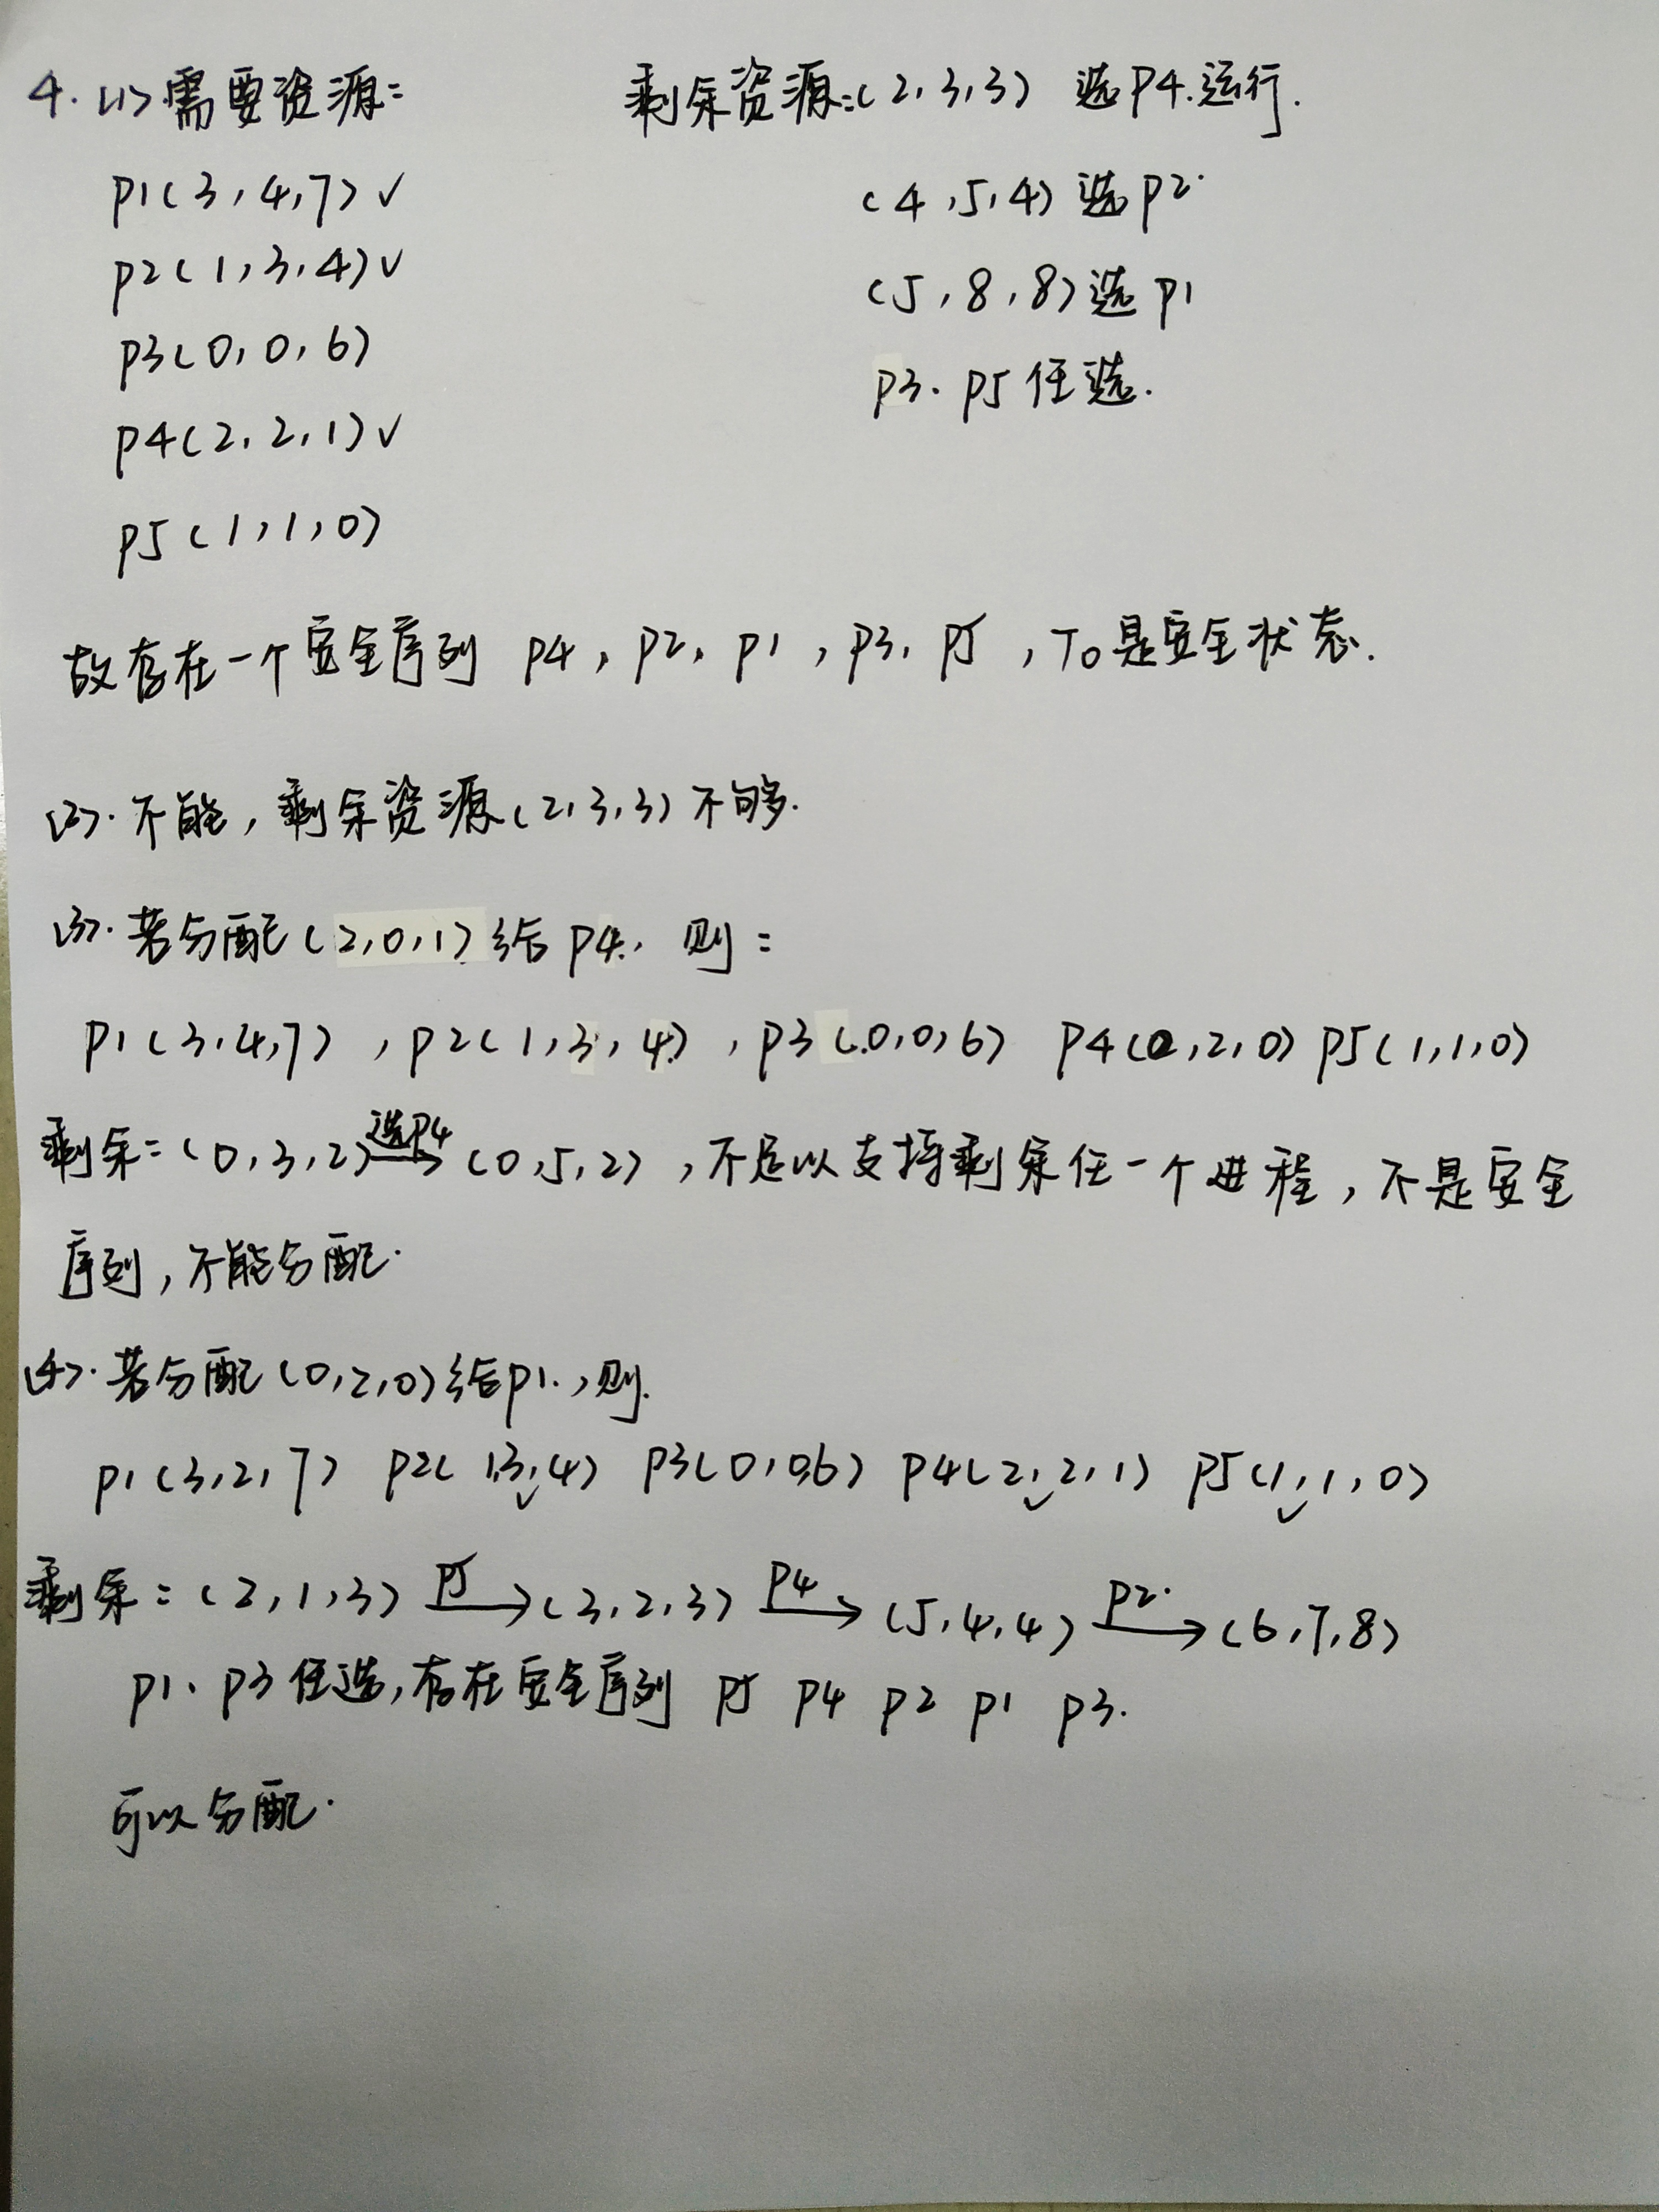 4. (1) 需要资源:
剩余资源:(2,3,3) 选P4.运行.
P1(3,4,7)✓
(4,5,4) 选P2.
P2(1,3,4)✓
(5,8,8)选P1
P3(0,0,6)
P3. P5任选.
P4(2,2,1)✓
P5(1,1,0)
故存在一个安全序列 P4, P2, P1, P3, P5, T0是安全状态.
(2). 不能, 剩余资源(2,3,3)不够.
(3). 若分配(2,0,1)给P4, 则:
P1(3,4,7), P2(1,3,4), P3(0,0,6) P4(0,2,0) P5(1,1,0)
剩余:(0,3,2) 选P4→ (0,5,2), 不足以支持剩余任一个进程, 不是安全
序列, 不能分配.
(4). 若分配(0,2,0)给P1., 则.
P1(3,2,7) P2(1,3,4) P3(0,0,6) P4(2,2,1) P5(1,1,0)
剩余:(2,1,3) P5→ (3,2,3) P4→ (5,4,4) P2.→ (6,7,8)
P1、P3任选, 存在安全序列 P5 P4 P2 P1 P3.
可以分配.